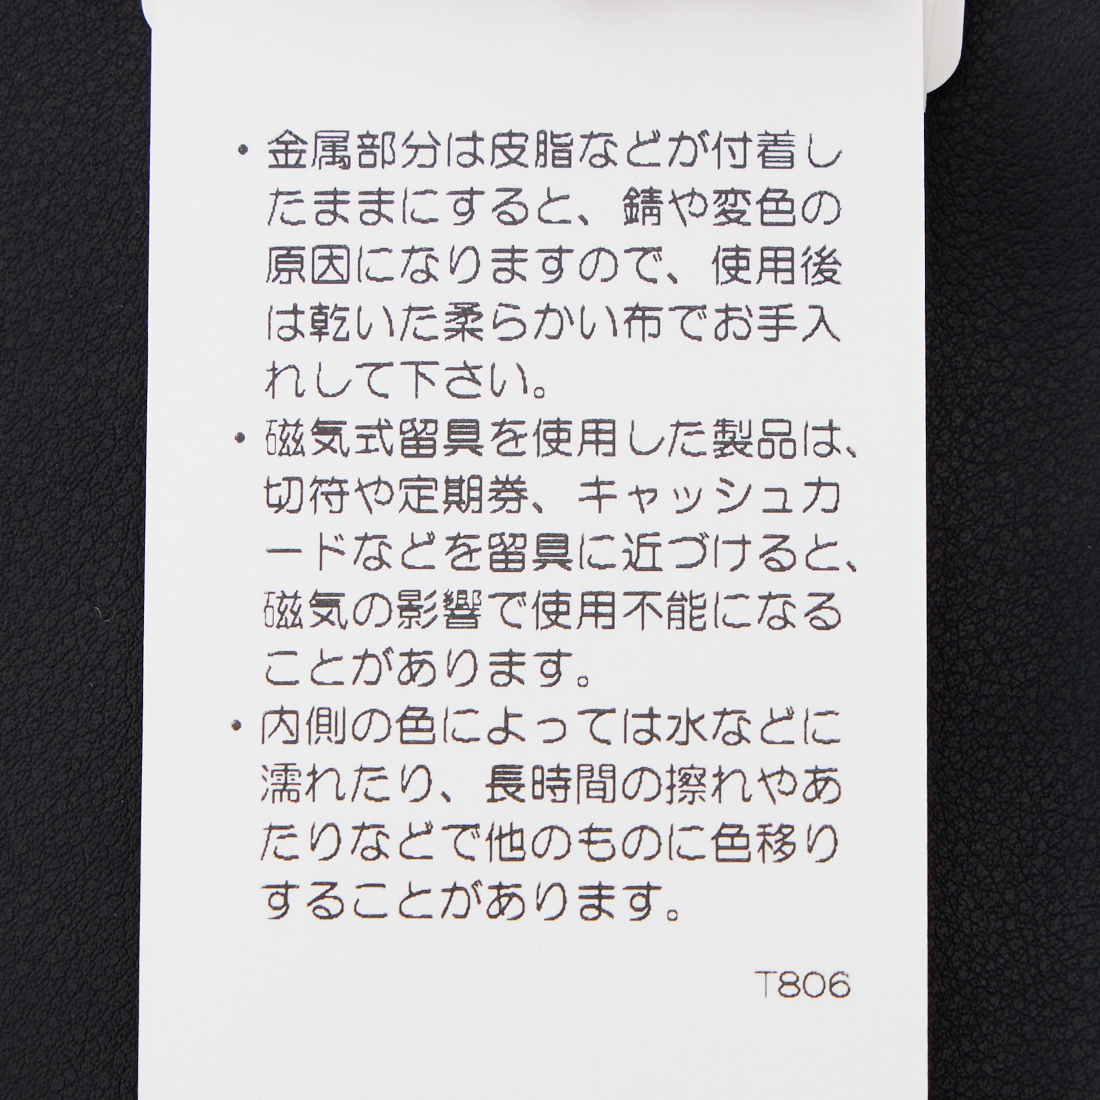 ・金属部分は皮脂などが付着し
たままにすると、錆や変色の
原因になりますので、使用後
は乾いた柔らかい布でお手入
れして下さい。
・磁気式留具を使用した製品は、
切符や定期券、キャッシュカ
ードなどを留具に近づけると、
磁気の影響で使用不能になる
ことがあります。
・内側の色によっては水などに
濡れたり、長時間の擦れやあ
たりなどで他のものに色移り
することがあります。
T806